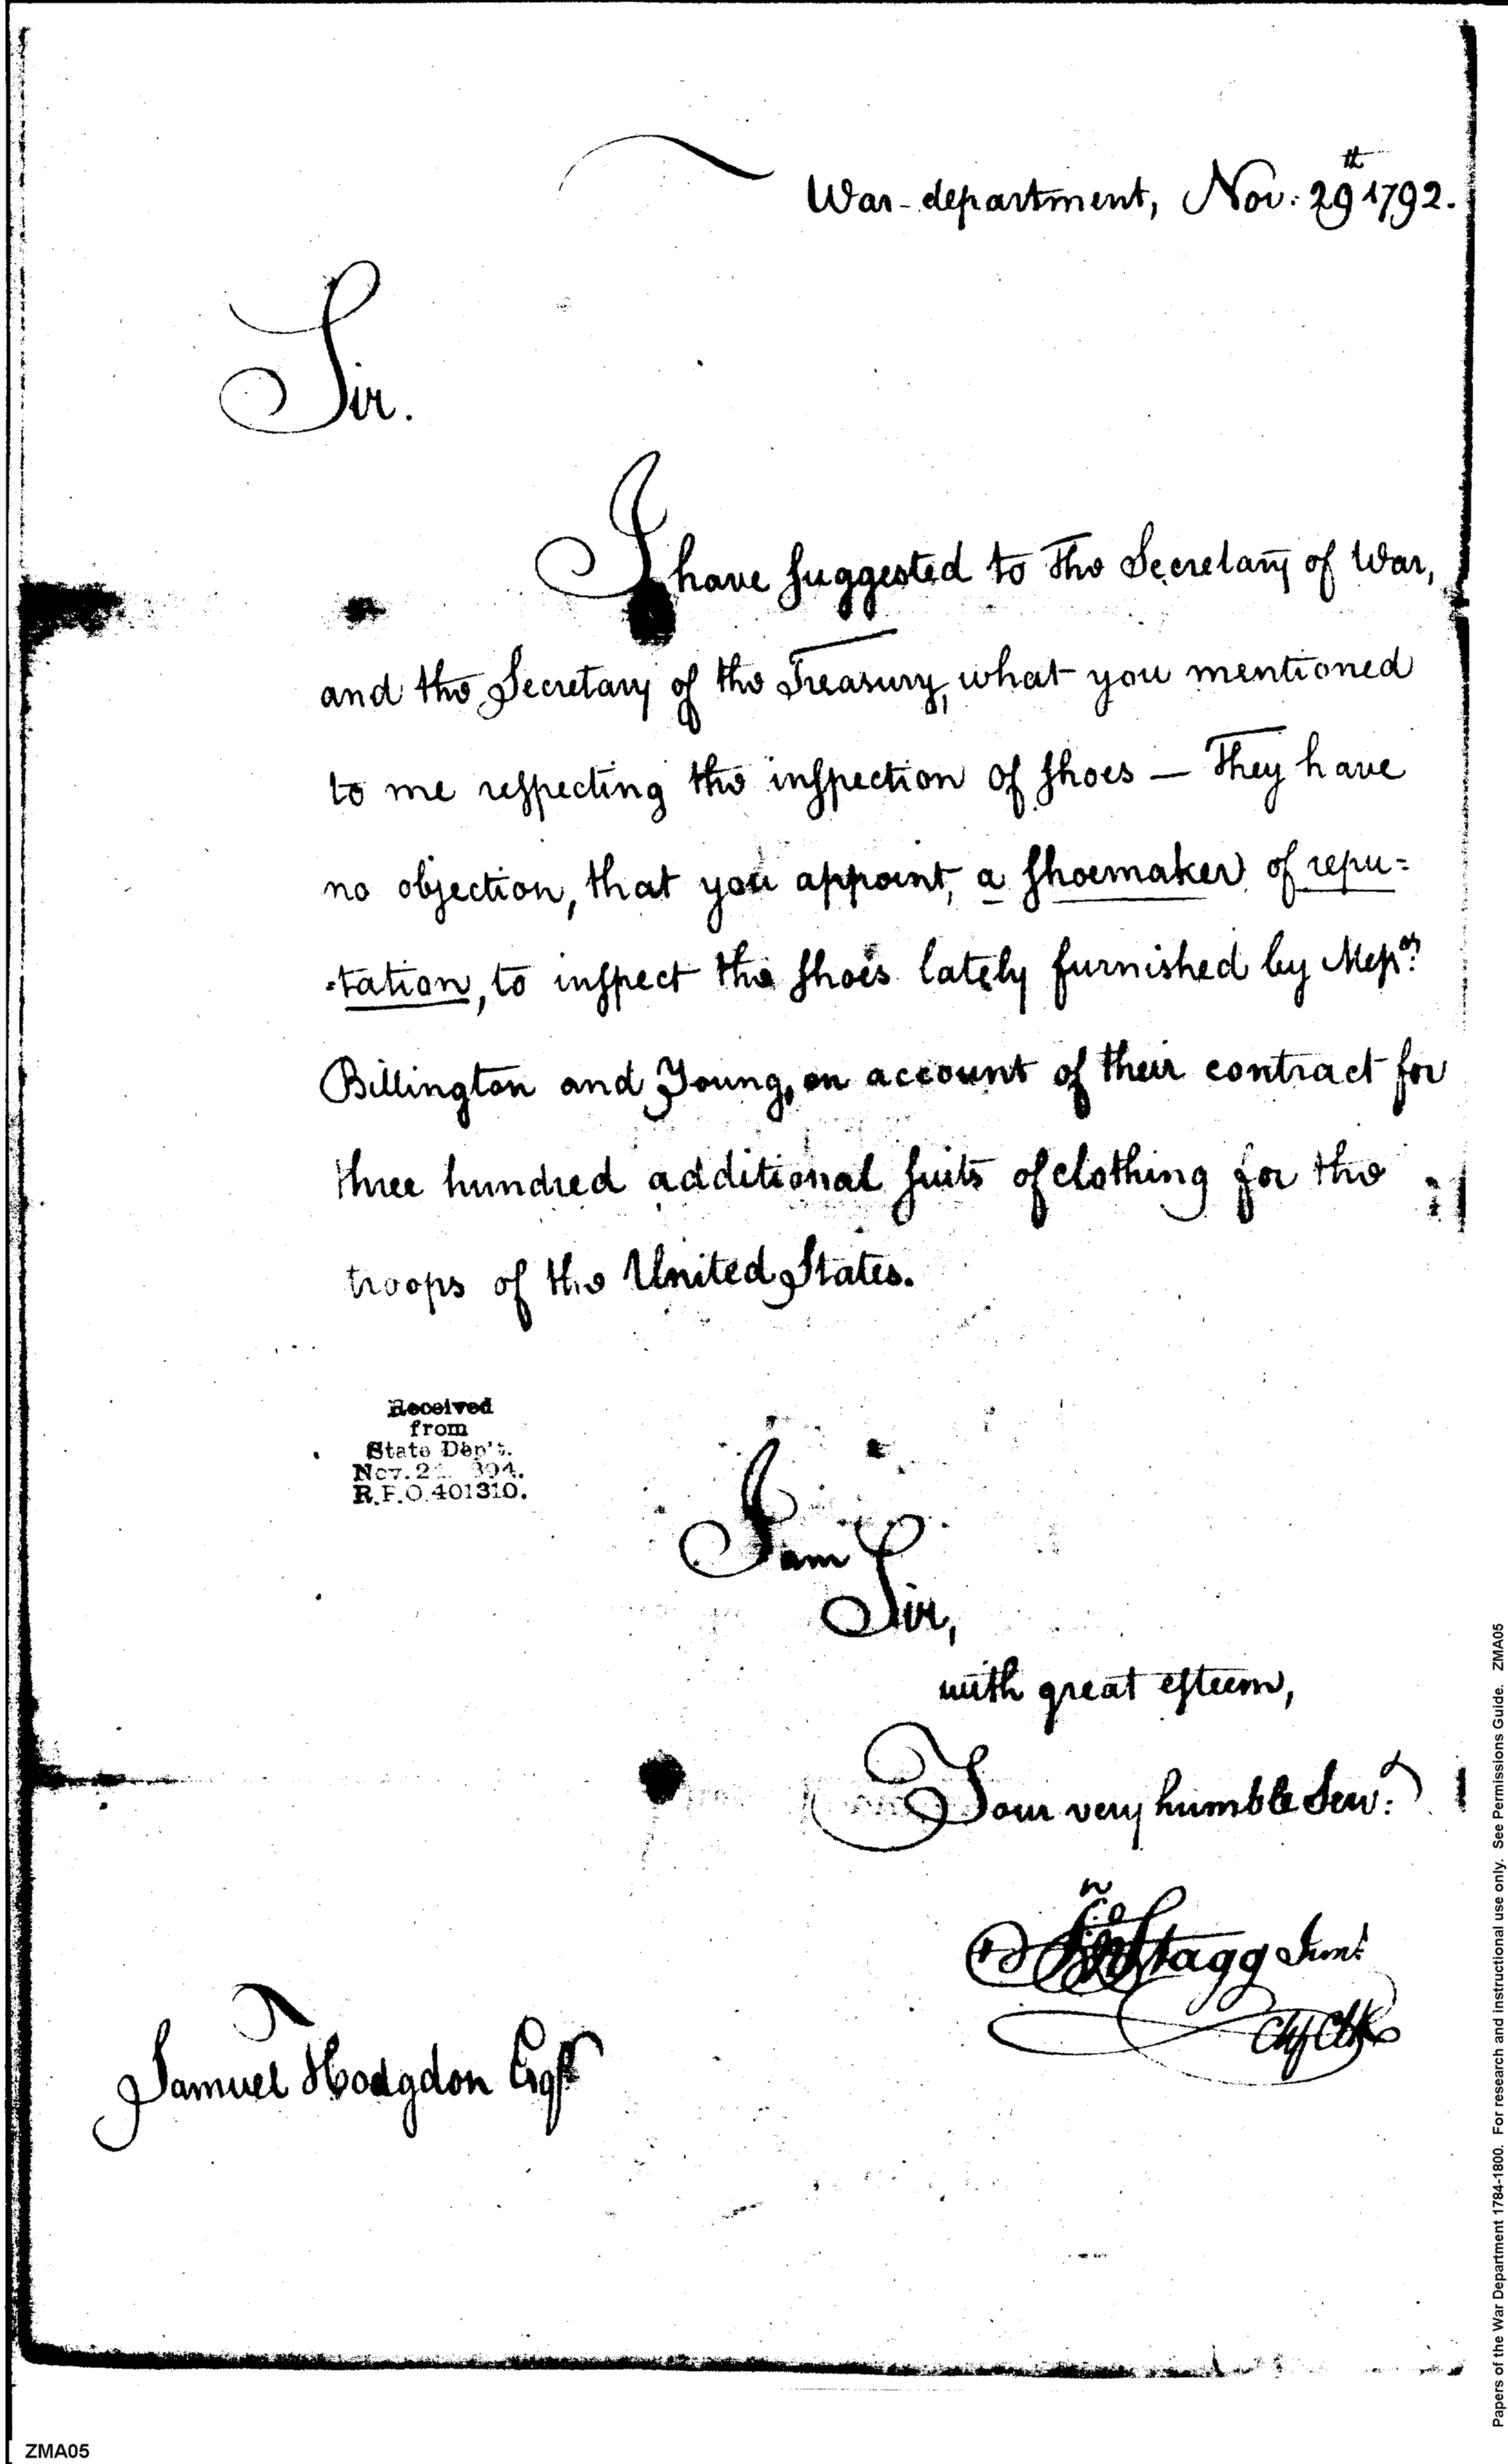 War-department, Nov: 29th 1792.
Sir.
I have suggested to the Secretary of War,
and the Secretary of the Treasury, what you mentioned
to me respecting the inspection of shoes — They have
no objection, that you appoint, a shoemaker of repu=
-tation, to inspect the shoes lately furnished by Messrs.
Billington and Young, on account of their contract for
three hundred additional suits of clothing for the
troops of the United States.
Received
from
State Dep't.
R.P.O. 401310.
I am
Sir,
with great esteem,
Your very humble Serv:t
Jno Stagg Junr.
Chf Clk
Samuel Hodgdon Esqr
Papers of the War Department 1784-1800. For research and instructional use only. See Permissions Guide. ZMA05
ZMA05